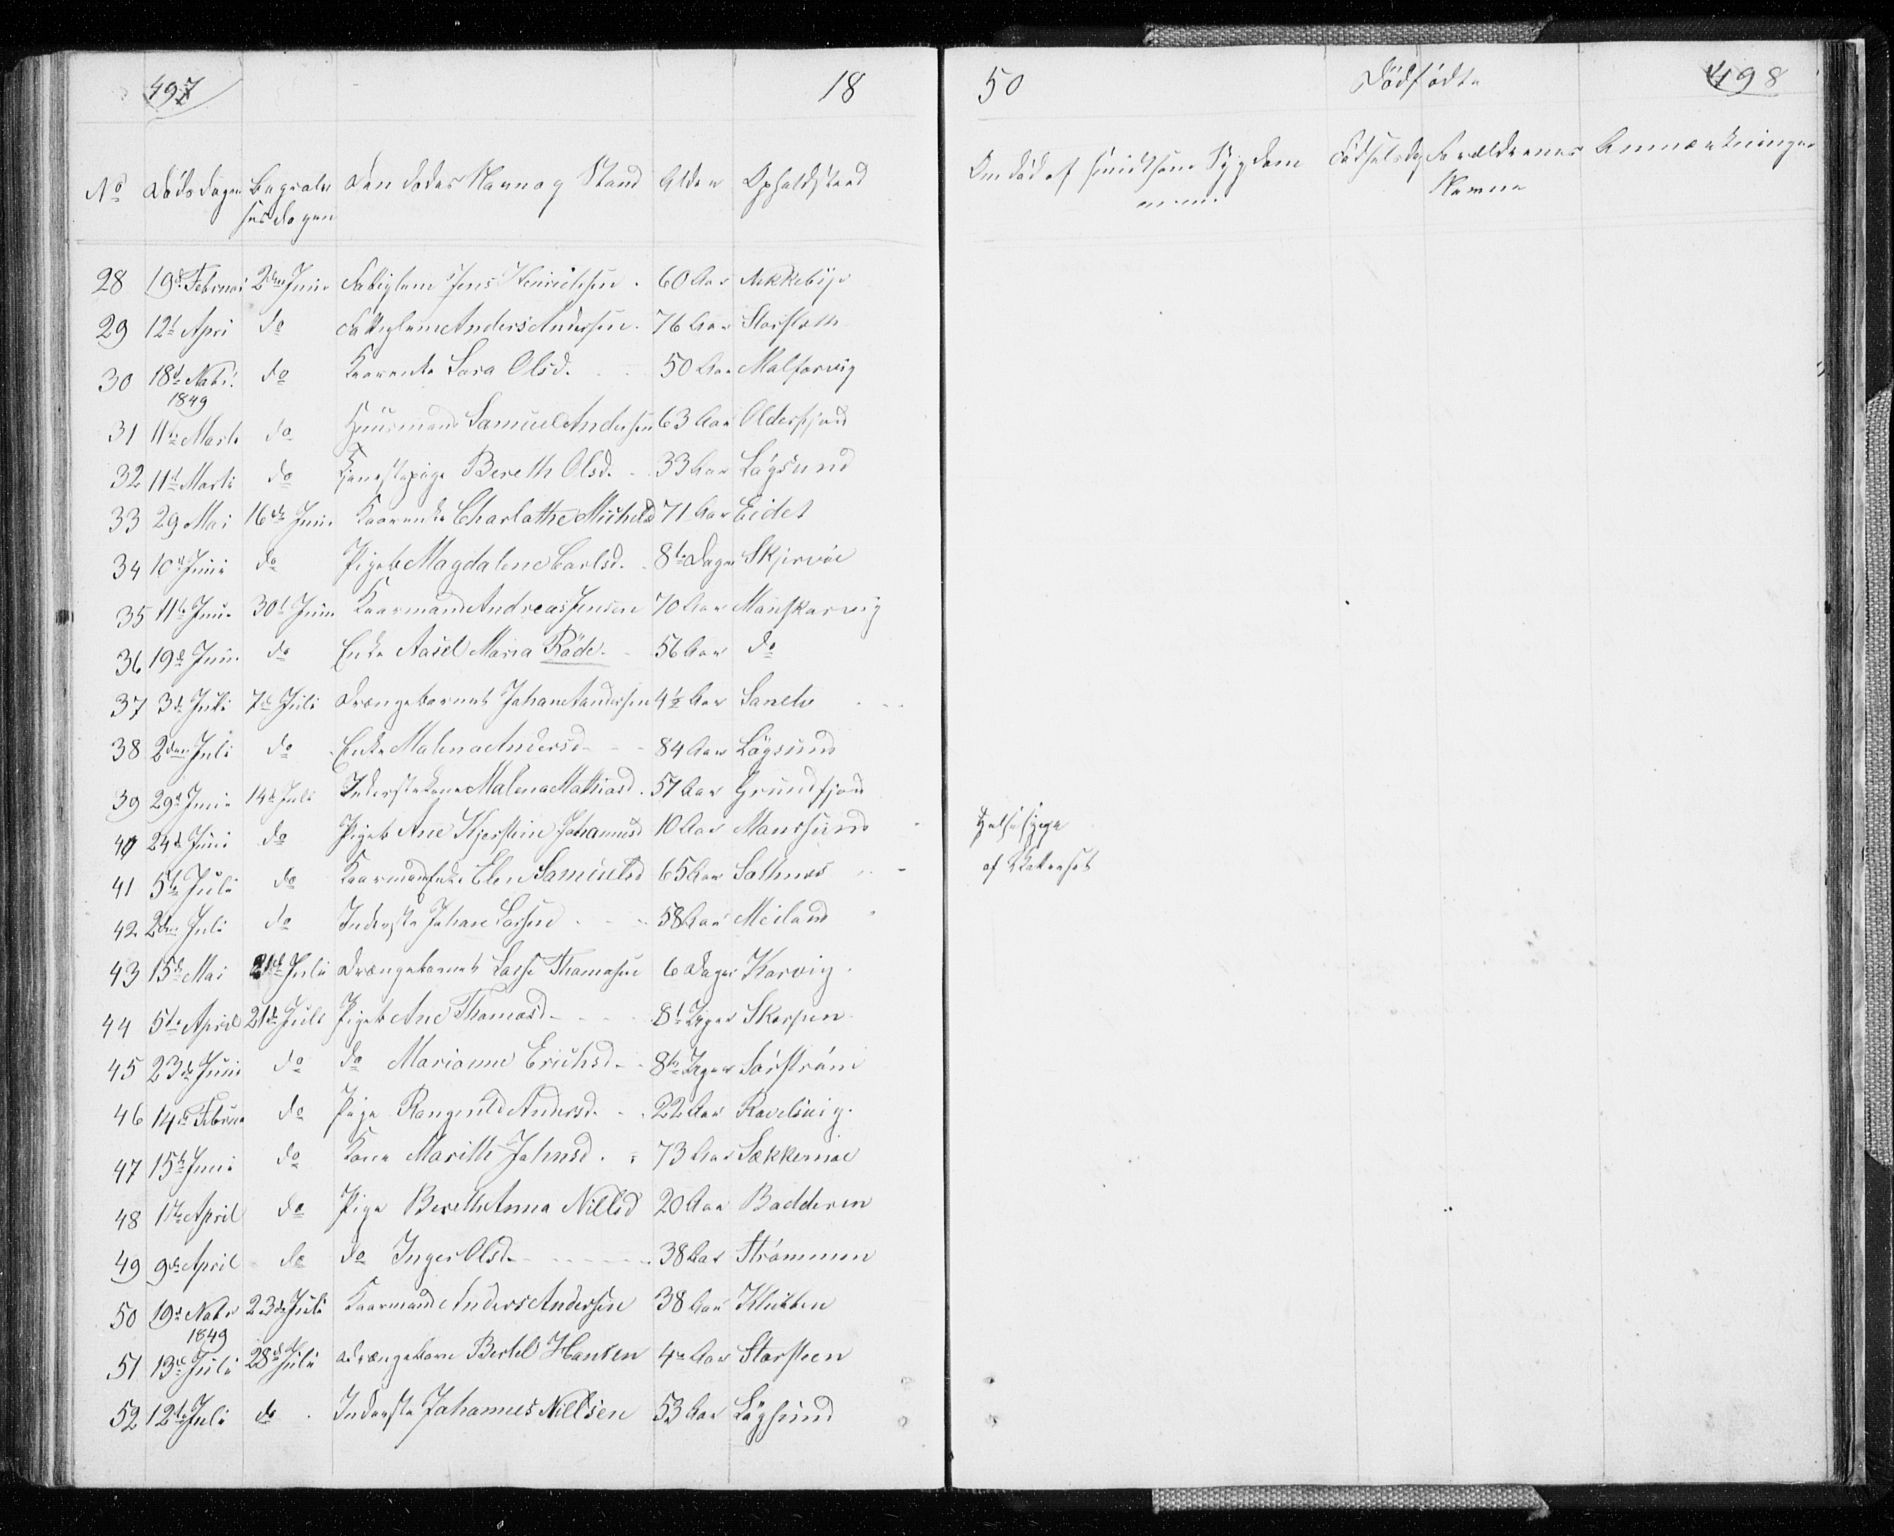 497 18
No Dødsdagen Begravel Den dødes Navn og Stand Alder Opholdssted
sesdagen
28 19d Februar 2den Juni Fattiglem Jens Henrichsen. 60 Aar
29 12t Apri do Fattiglem Anders Andersen. 76 Aar Storsleth
30 18d Nobr. do Kaarenke Sara Olsd. 50 Aar
1849
31 11te Marts do Huusmand Samuel Andersen 63 Aar Olderfjord
32 11t Marts do Tjenestepige Bereth Olsd. 33 Aar Løgsund
33 29 Mai 16de Juni Kaarenke Charlothe Michelsd 71 Aar Eidet
34 10d Juni do Pigeb Magdalene Carlsd. 8te Dage Skjervøe
35 11te Juni 30t Juni Kaarmand Andreas Jensen 70 Aar Maurskarvig
36 19d Juni do Enke Maria Röde. 56 Aar do
37 3d Juli 7d Juli Drengebarnet Johan Andersen 4½ Aar
38 2den Juli do Enke Malena Andersd 84 Aar Løgsund
39 29d Juni 14d Juli Inderstekone Malena Mathiasd. 57 Aar Grundfjord
40 24d Juni do Pigeb Ane Kjerstine Johannesd 10 Aar Maursund
41 5te Juli do Kaarmandsenke Elen Samuelsd 65 Aar
42 2den Juli do Inderste Johan Larsen 58 Aar Meiland
43 15d Mai 21d Juli Drengebarnet Lasse Thomasen 6 Dage Korvig.
44 5te April 21d Juli Pigeb Ane Thomasd 8t Dage Skorpen
45 23de Juni do do Marianne Erichsd. 8te Dage Sørstrøm
46 14d Februar do Pige Ragnild Andersd. 22 Aar Ravelsvig.
47 15t Juni do Kone Marithe Johnsd. 73 Aar
48 1te April do Pige Bereth Anna Nillsd 20 Aar Badderen
49 9de April do do Inger Olsd. 38 Aar Strømmen
50 19d Nobr 23de Juli Kaarmand Anders Andersen 38 Aar Klubben
1849
51 13d Juli 28d Juli Drengebarn Berthel Hansen 4 Aar Storsteen
52 12te Juli do. Inderste Johannes Nillsen 53 Aar Løgsund
50 Dødfødte 498
Om død af smidtsom Sygdom Fødselsdag Forældrenes Anmærkninger
m. m. Navne
Halssyge
af